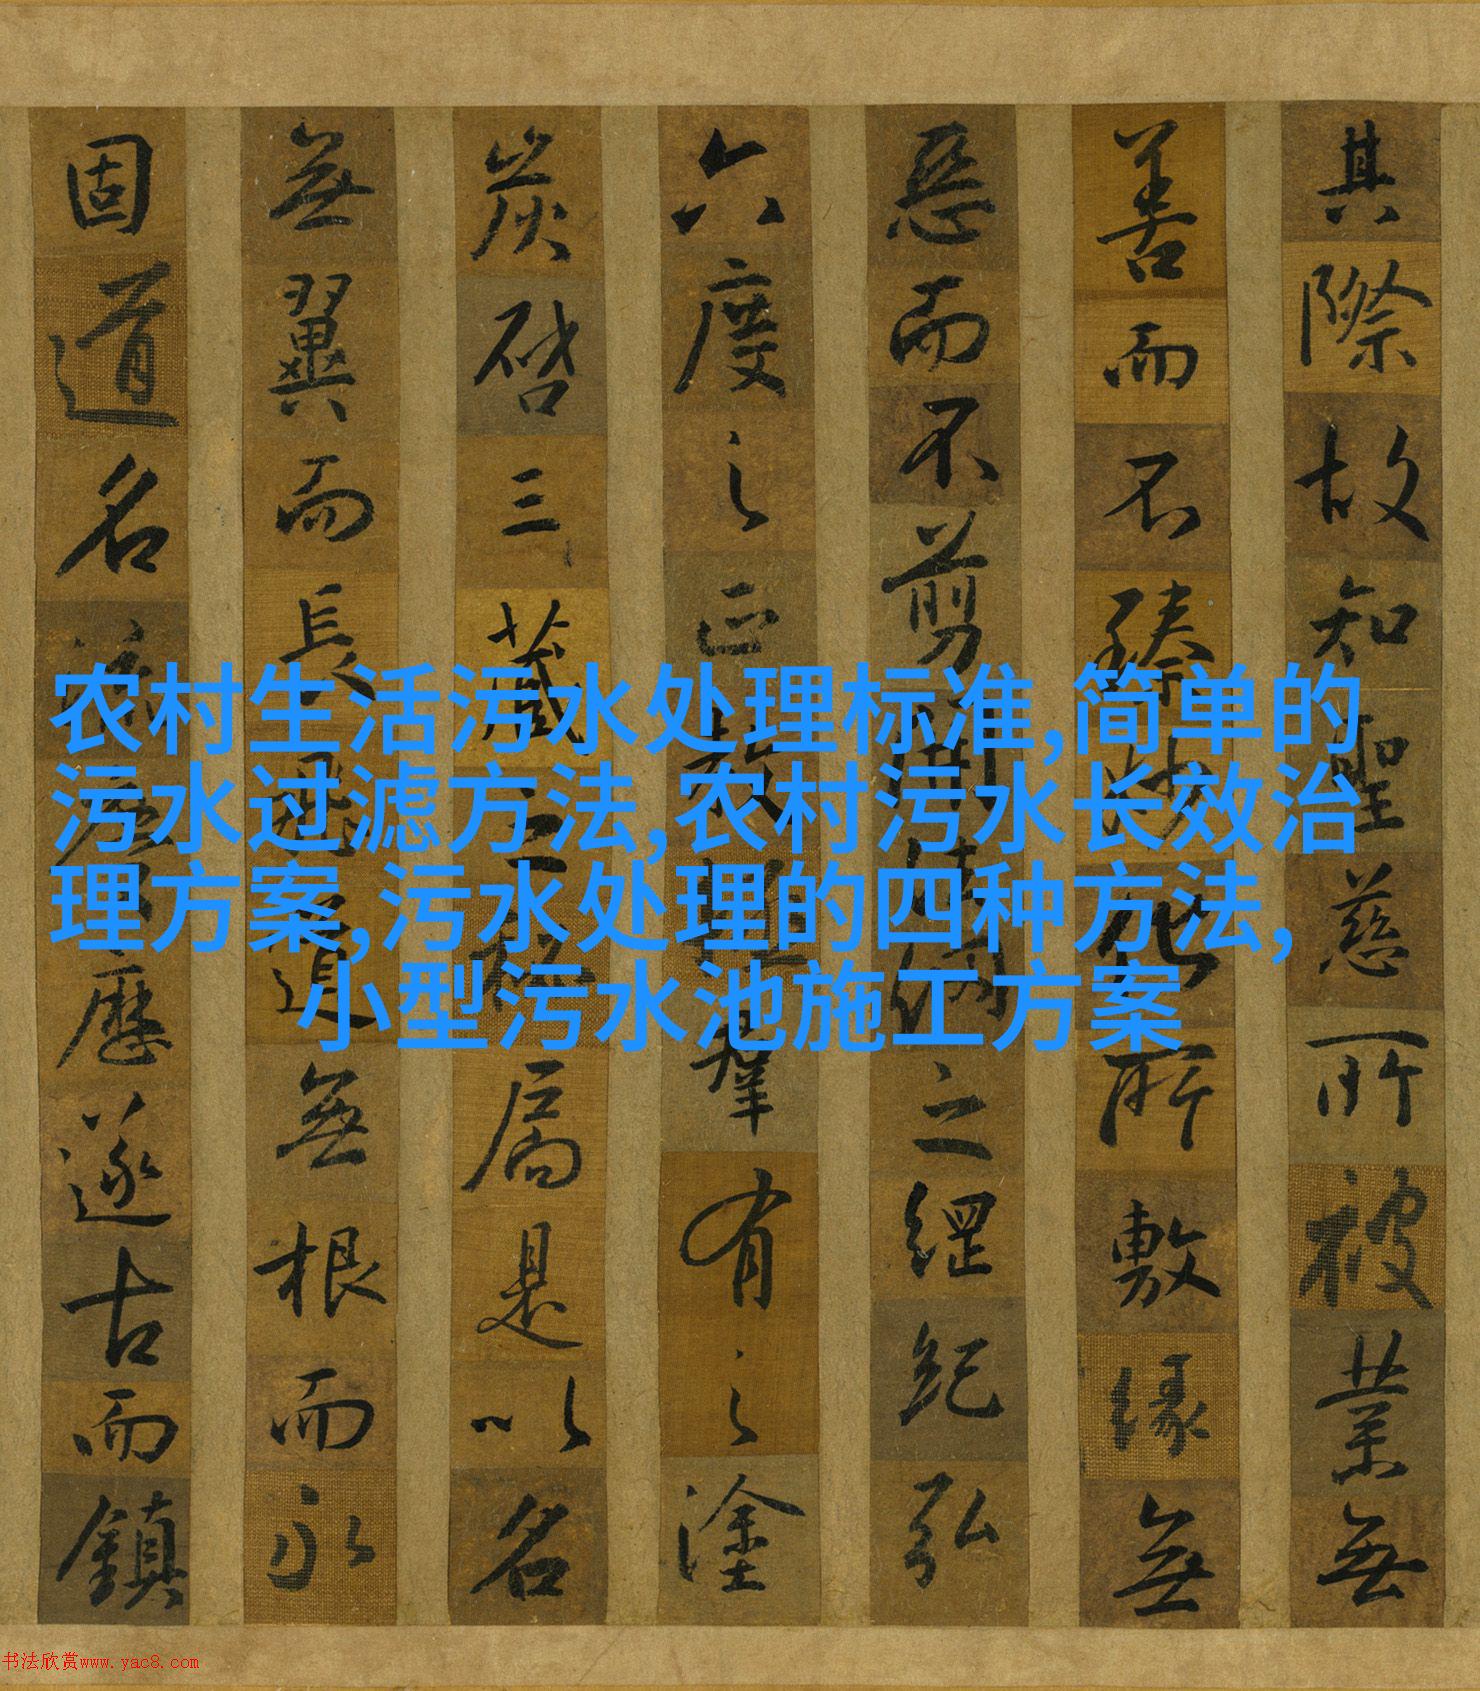 其際故知聖慈所被業無
善而不臻妙化所敷緣無
惡而不剪開法網之綱紀弘
六度之正教拯羣有之塗
炭啓三藏之秘扃是以名
無翼而長飛道無根而永
固道名流慶歷遂古而鎮
农村生活污水处理标准,简单的
污水过滤方法,农村污水长效治
理方案,污水处理的四种方法,
小型污水池施工方案
书法欣赏www.yac8.com